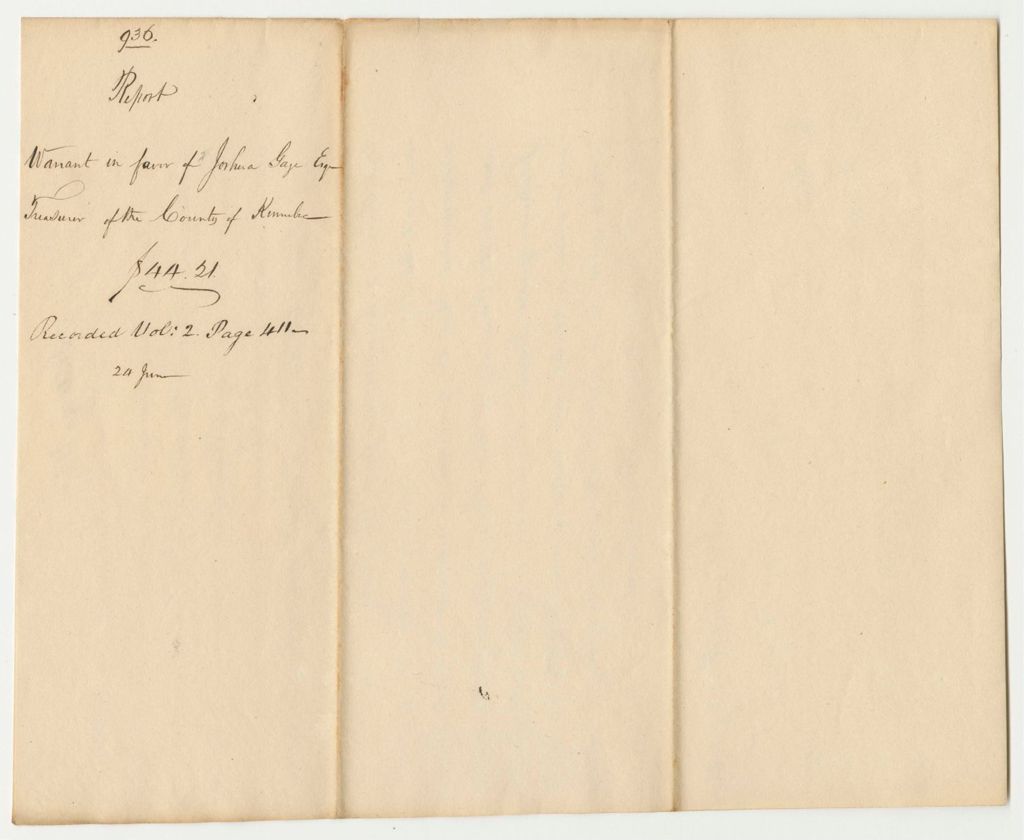 936.
Report
Warrant in favor of Joshua Gage Esq
Treasurer of the County of Kennebec
$44.21
Recorded Vol: 2. Page 411
24 June